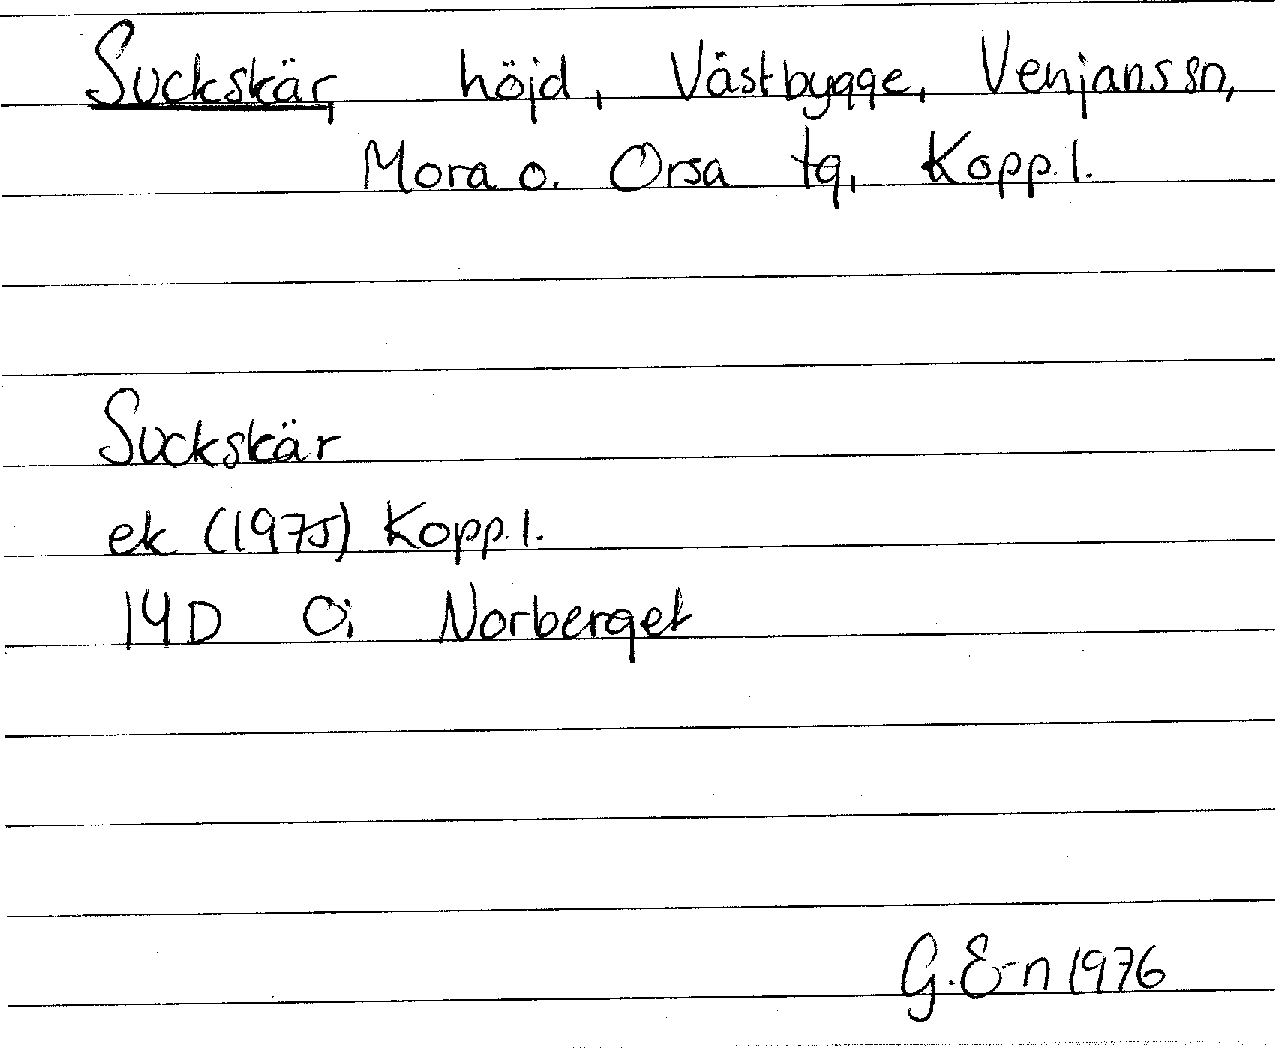 Suckskär höjd, Västbygge, Venjans sn,
Mora o. Orsa tg, Kopp. l.
Suckskär
ek (1975) Kopp. l.
14D Oi Norberget
G.E-n 1976